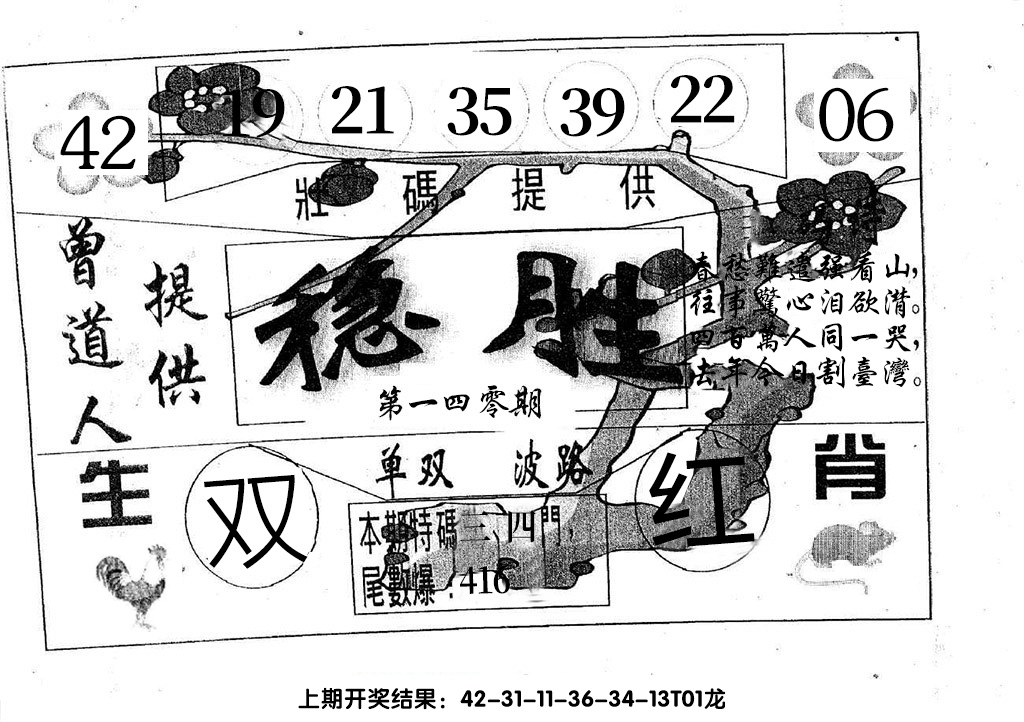 42 19 21 35 39 22 06
壯碼提供
特
曾道人
提供
稳胜
第一四零期
春愁難遣强看山，
往事驚心泪欲潸。
四百萬人同一哭，
去年今日割臺灣。
单双 波路
生肖
双
红
本期特碼三、四門，
尾數爆：416
上期开奖结果：42-31-11-36-34-13T01龙